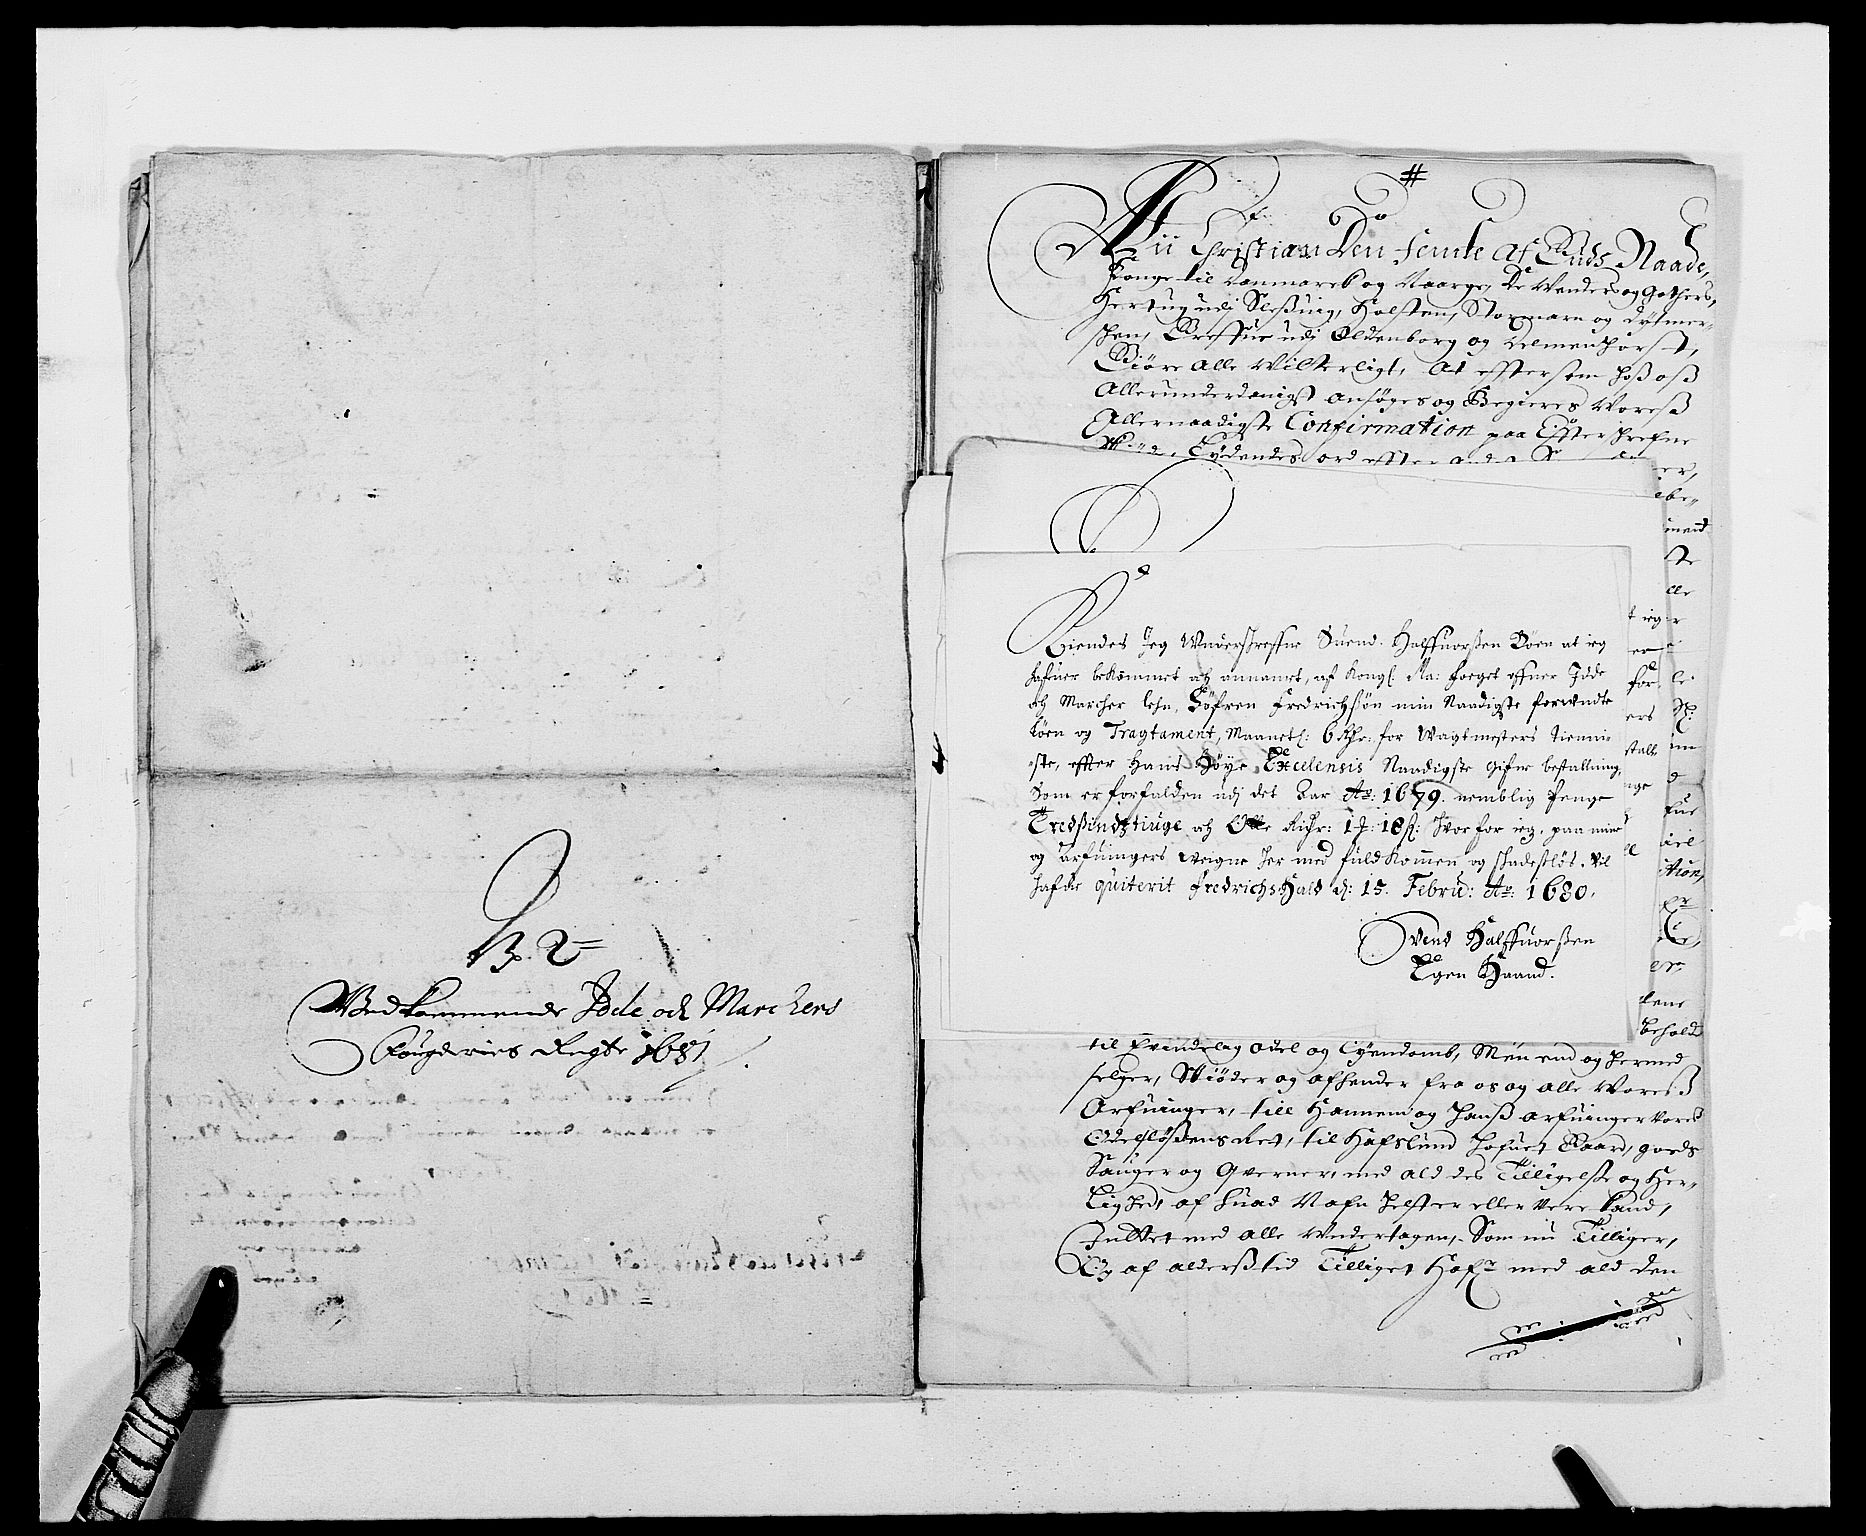 N. 2
Vedkommende Idde och Marchers
Fougderies Regte 1681
#
Wii Christian Den Femte af Guds Naade,
Konge til Danmarck og Norge, De Wenders og Gothers,
Hertug udj Sleßuig, Holsten, Stormarn og Dytmer-
schen, Greffue udj Oldenborg og Delmenhorst,
Giøre alle Witterligt, At efftersom hoß oß
Allerunderdanigst ansøges og Begieres Voreß
Allernaadigste Confirmation paa Effterschrefne
Lydendes ord effter
Kiendes Jeg Underschreffne Suend Halffuorßen Røen at ieg
hafuer bekommet och annammet, af Kongl: Ma: foeget offuer Idde
och Marcher lehn, Søfren Fredrichsøn min Naadigste forundte
Løen og Tragtament, Maanetl: 6 Rdr: for Wagtmesters tienni-
ste, effter Hans Høye Excelensis Naadigste Gifne bestallning,
Som er forfalden udj det Aar Ao: 1679. nemblig Penge
Tredßindstiuge och Otte Richr: 1 ꝶ: 18 ß: Hvorfor ieg, paa mine
og arfuingers weigne her med fuldkommen og skadesløs vil
hafue quiterit Fredrichshald d: 15. Febru: Ao: 1680.
Svend Halffuorßen
Egen Haand.
til Evindelag odel og Eyendomb, Men end og hermed
selger, Skiøder og afhender fra os og alle Voreß
Arfuinger, till Hannem og hanß arfuinger Voreß
Odelsløßens Ret, til Hafslund hofuet Gaard, goeds
Sauger og Qverner, med ald des Tilligelse og Her-
Lighed, af huad Nafn helst er eller Vere kand,
Inttet med alle Undertagen, Som nu Tilliger,
Og af alderß tid Tilliget Hafr med ald den